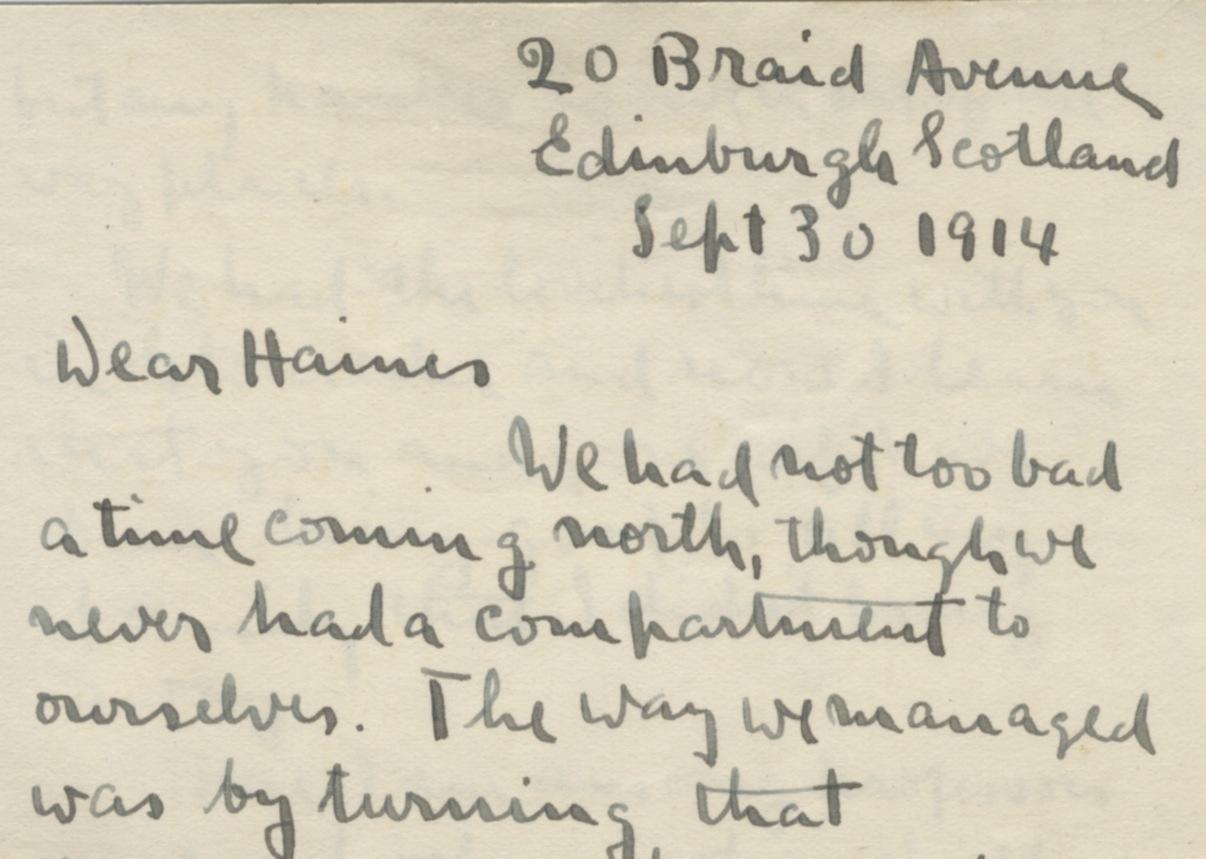 20 Braid Avenue
Edinburgh Scotland
Sept 30 1914
Dear Haines
We had not too bad
a time coming north, though we
never had a compartment to
ourselves. The way we managed
was by turning that